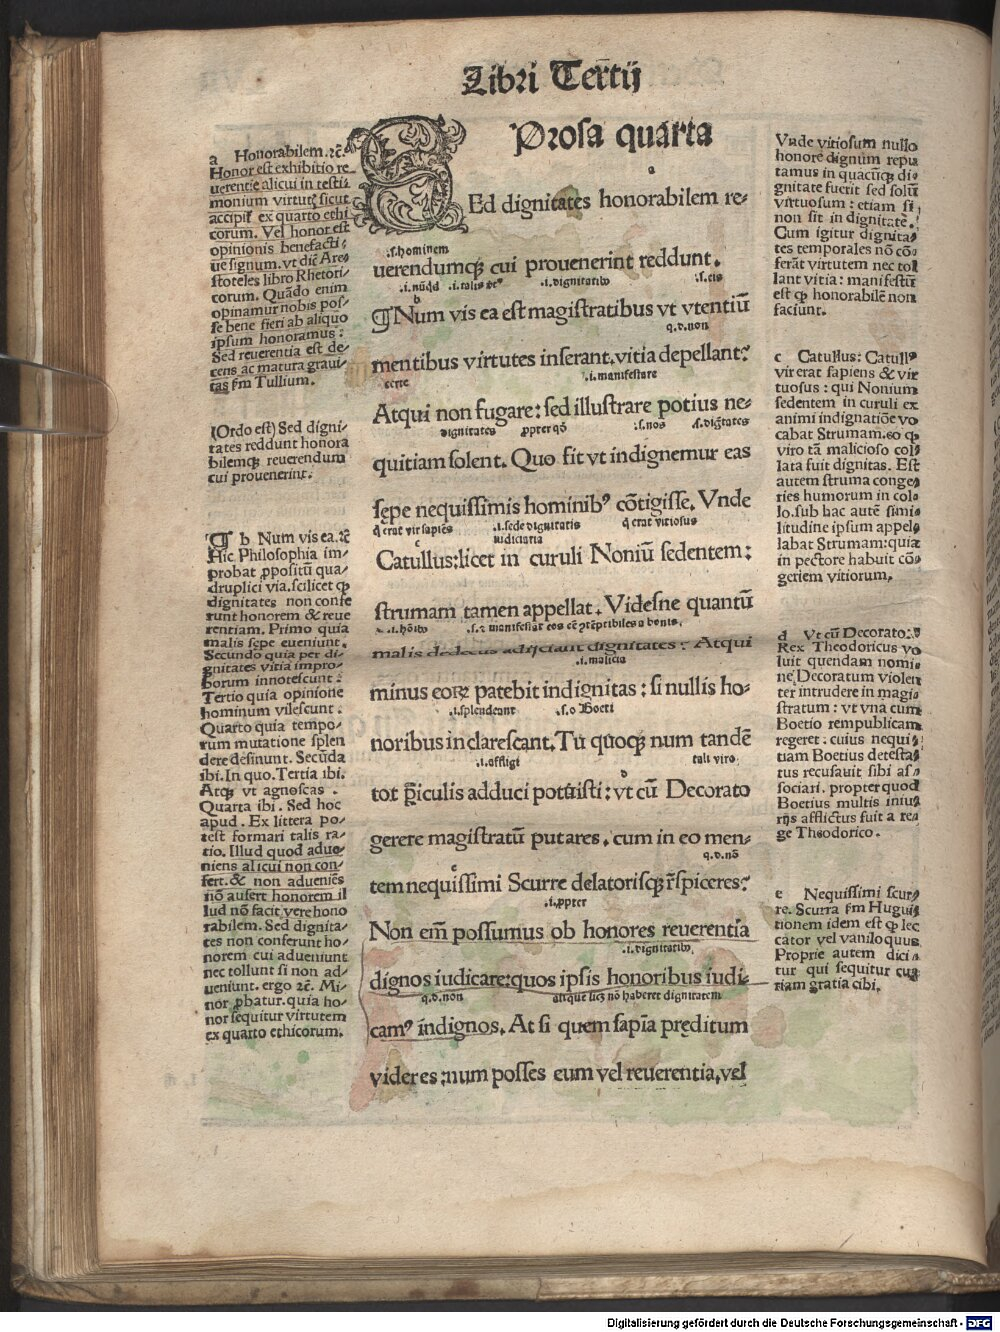 Libri Tertij
Prosa quarta
a Honorabilem.⁊c̃.
Honor est exhibitio re
uerentie alicui in testi⸗
monium virtutꝭ sicut
accipit̃ ex quarto ethi
corum. Vel honor est
opinionis benefacti⸗
ue signum. vt dic̃ Ares
stoteles libro Rhetori⸗
corum. Quãdo enim
opinamur nobis pos⸗
se bene fieri ab aliquo
ipsum honoramus:
Sed reuerentia est de⸗
cens ac matura graui⸗
tas ẜm Tullium.
(Ordo est) Sed digni⸗
tates reddunt honora
bilemqꝫ reuerendum
cui prouenerint.
¶ b Num vis ea.⁊c̃
Hic Philosophia im⸗
probat ꝓpositũ qua⸗
druplici via. scilicet ꝙ
dignitates non confe
runt honorem & reue
rentiam. Primo quia
malis sepe eueniunt.
Secundo quia per di⸗
gnitates vitia impro⸗
borum innotescunt:
Tertio quia opinione
hominum vilescunt.
Quarto quia tempo⸗
rum mutatione splen
dere desinunt. Secũda
ibi. In quo. Tertia ibi.
Atqꝫ vt agnoscas.
Quarta ibi. Sed hoc
apud. Ex littera po⸗
test formari talis ra⸗
tio. Illud quod adue⸗
niens alicui non con⸗
fert. & non adueniẽs
nõ aufert honorem il
lud nõ facit vere hono
rabilem. Sed dignita⸗
tes non conferunt ho⸗
norem cui adueniunt
nec tollunt si non ad⸗
ueniunt. ergo ⁊c̃. Mi⸗
nor ꝓbatur. quia ho⸗
nor sequitur virtutem
ex quarto ethicorum.
a
SEd dignitates honorabilem re⸗
.s. hominem
uerendumqꝫ cui prouenerint reddunt.
.i. nũqd .i. talis vt .i. dignitatib9 .s. eis
b
¶Num vis ea est magistratibus vt vtentiũ
q.d. non
mentibus virtutes inserant. vitia depellant:
certe .i. manifestare
Atqui non fugare: sed illustrare potius ne⸗
dignitates ꝓpter qõ .s. nos .s. digtates
quitiam solent. Quo fit vt indignemur eas
sępe nequissimis hominibꝰ cõtigisse. Vnde
q̃ erat vir sapiẽs .i. sede dignitatis q̃ erat vitiosus
c iudiciaria
Catullus: licet in curuli Noniũ sedentem:
strumam tamen appellat. Videsne quantũ
malis dedecus adijciant dignitates: Atqui
.i. malicia
minus eorꝝ patebit indignitas: si nullis ho⸗
.i. splendeant .s. o Boeti
noribus inclarescant. Tu quoqꝫ num tandẽ
.i. affligi tali viro
d
tot p̃iculis adduci potuisti: vt cũ Decorato
gerere magistratũ putares. cum in eo men⸗
q.d. nõ
e
tem nequissimi Scurre delatorisqꝫ r̃spiceres:
.i. ꝓpter
Non em̃ possumus ob honores reuerentia
.i. dignitatib9
dignos iudicare: quos ipsis honoribus iudi⸗
q.d. non
camꝰ indignos. At si quem sapia pręditum
videres: num posses eum vel reuerentia, vel
Vnde vitiosum nullo
honore dignum repu
tamus in quacũqꝫ di⸗
gnitate fuerit sed solũ
virtuosum: etiam si
non sit in dignitatẽ.
Cum igitur dignita⸗
tes temporales nõ cõ⸗
ferãt virtutem nec tol
lant vitia: manifestũ
est ꝙ honorabilẽ non
faciunt.
c Catullus: Catullꝰ
vir erat sapiens & vir
tuosus: qui Nonium
sedentem in curuli ex
animi indignatiõe vo
cabat Strumam. eo ꝙ
viro tã malicioso col⸗
lata fuit dignitas. Est
autem struma conge⸗
ries humorum in col⸗
lo. sub hac autẽ simi⸗
litudine ipsum appel⸗
labat Strumam: quia
in pectore habuit cõ⸗
geriem vitiorum.
d Vt cũ Decorato:
Rex Theodoricus vo
luit quendam nomi⸗
ne Decoratum violen
ter intrudere in magi⸗
stratum: vt vna cum
Boetio rempublicam
regeret. cuius nequi⸗
tiam Boetius detesta⸗
tus recusauit sibi as⸗
sociari. propter quod
Boetius multis iniu⸗
rijs afflictus fuit a re⸗
ge Theodorico.
e Nequissimi scur⸗
re. Scurra ẜm Hugui⸗
tionem idem est ꝙ lec
cator vel vaniloquus
Proprie autem dici⸗
tur qui sequitur cu⸗
riam gratia cibi.
Digitalisierung gefördert durch die Deutsche Forschungsgemeinschaft - DFG